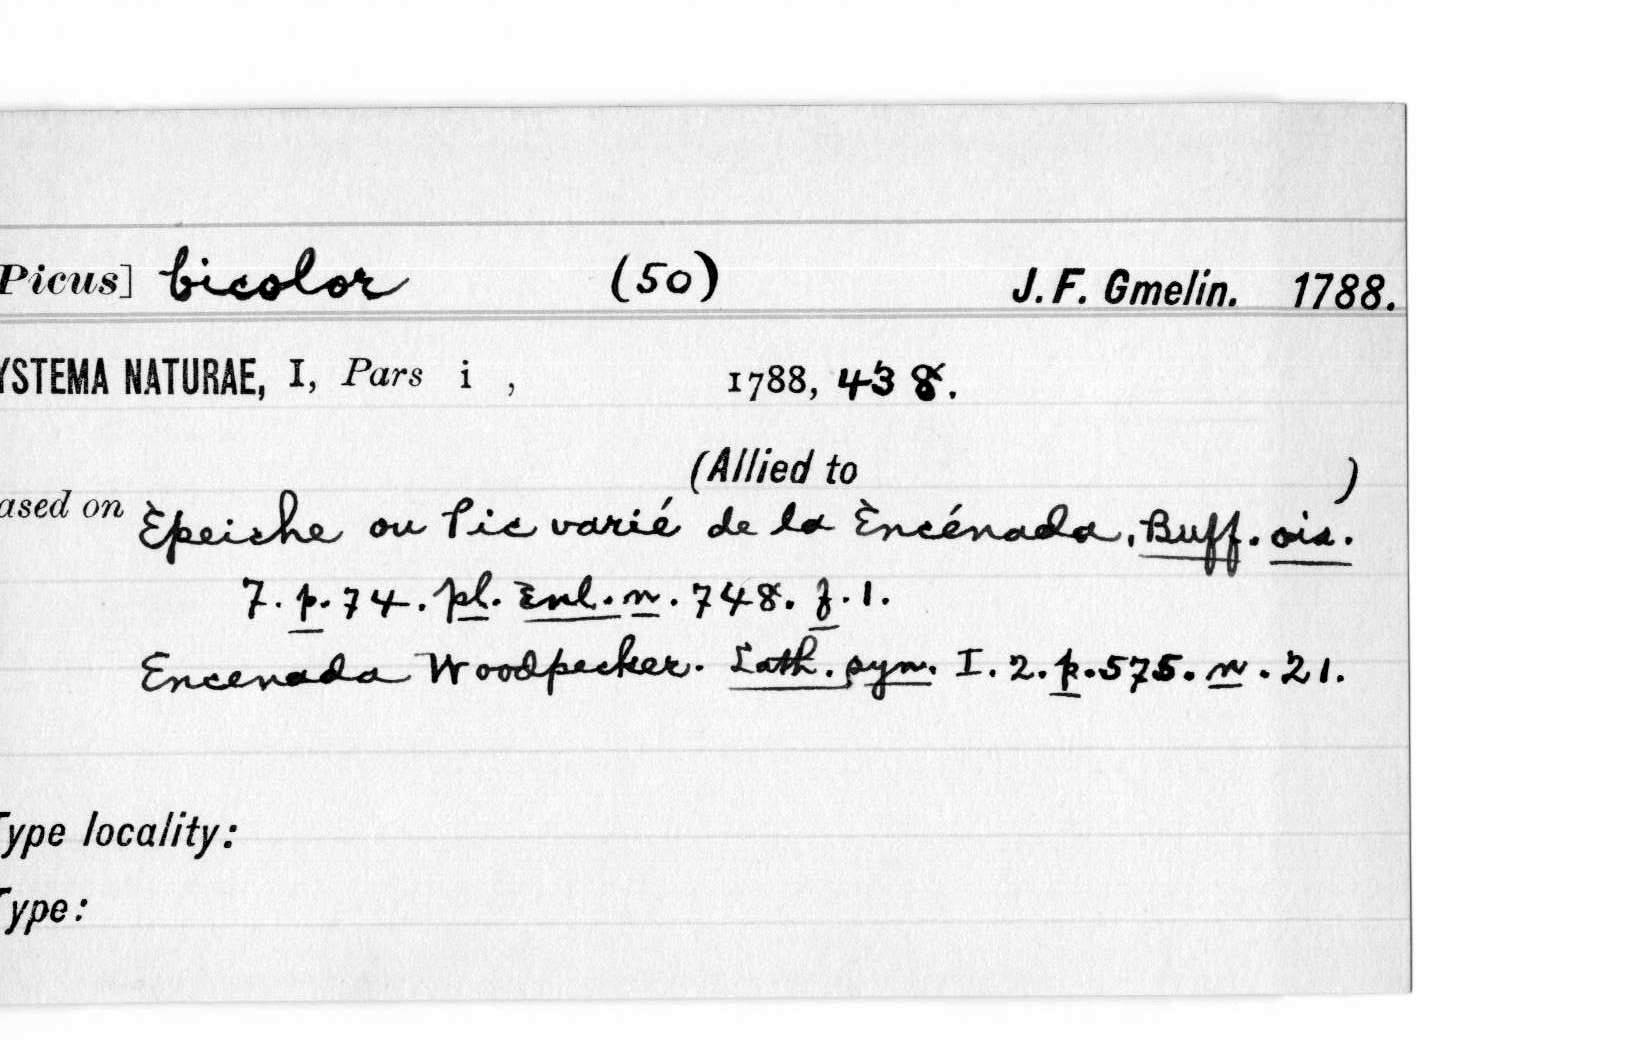 Picus] bicolor (50) J. F. Gmelin. 1788.
YSTEMA NATURAE, I, Pars i , 1788, 438.
(Allied to )
ased on Èpeiche ou Pic varié de la Èncénada, Buff. ois.
7. p. 74. pl. Enl. n. 748. f. 1.
Encenada Woodpecker. Lath. syn. I. 2. p. 575. n. 21.
Type locality:
Type: